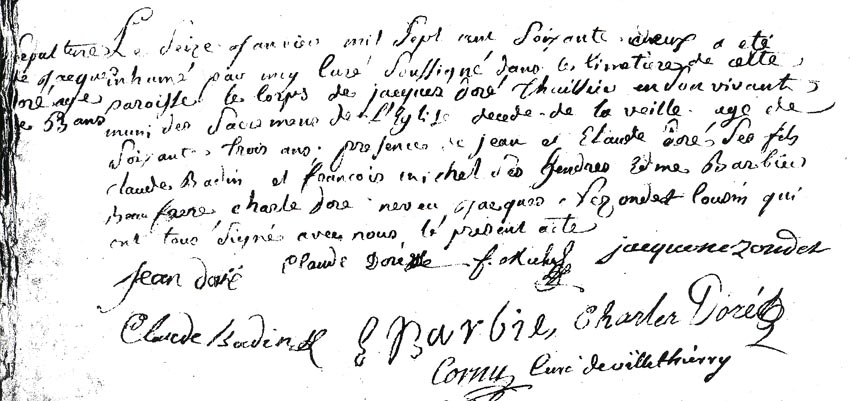 sepultures Le Seize janvier mil sept cent soixante deux a eté
de jacques inhumé par moy curé soussigné dans le cimetiere de cette
doré agé paroisse le corps de jacques doré thuillier en son vivant
de 63 ans muni des sacremens de L'Eglise decedé de la veille agé de
soixante trois ans. presences de jean et Claude doré ses fils
claude Badin et francois michel ses gendres Edme Barbier
beau frere charle doré neveu jacques Nezondet cousin qui
ont tous signé avec nous le présent acte
jean doré Claude Doré f. Michel jacque nezondet
Claude Badin E Barbie, Charles Doré
Cornu curé de villethierry